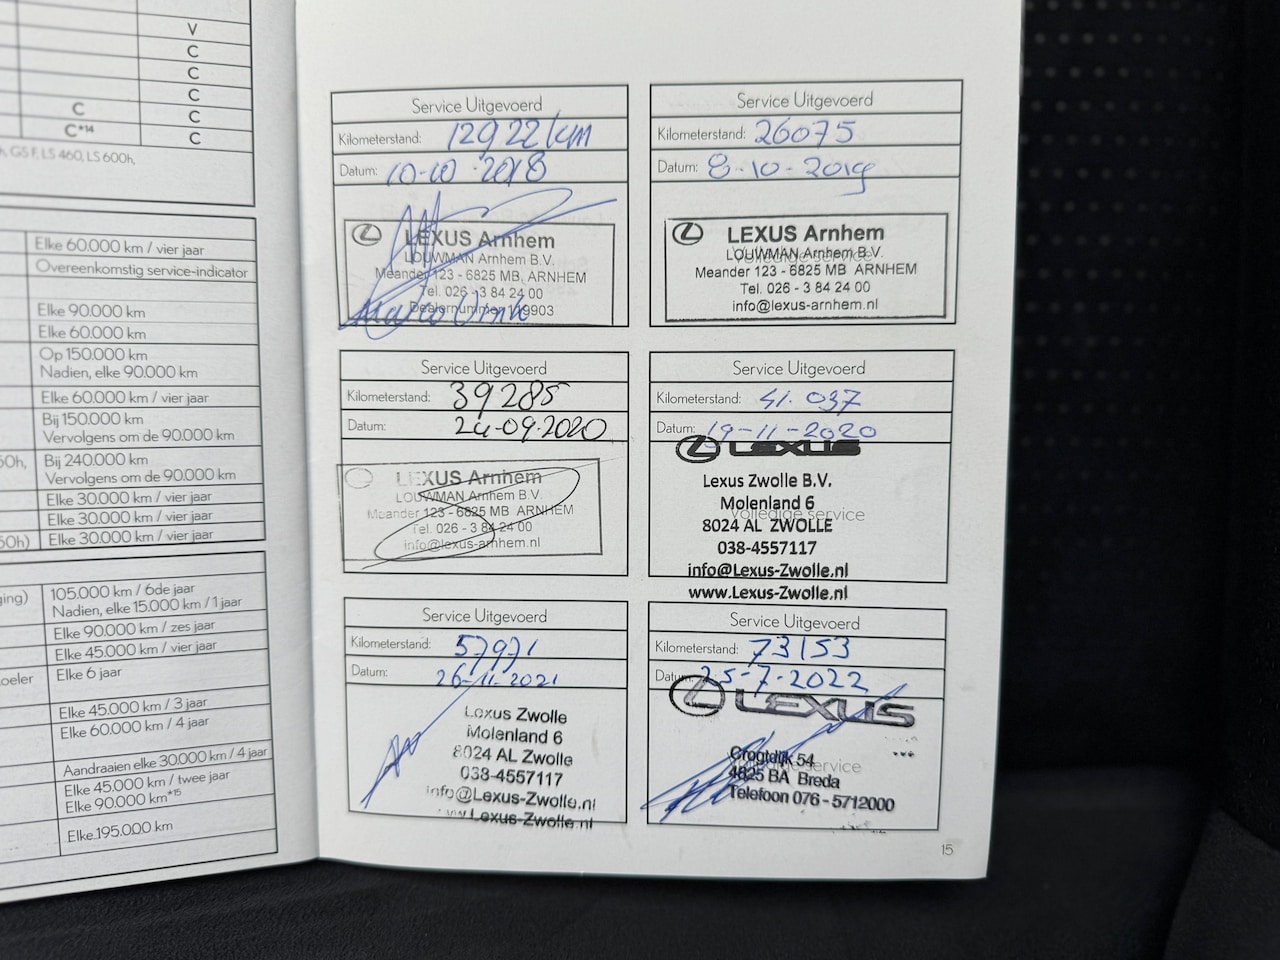 V
C
C
C
C C
C*14 C
GS F, LS 460, LS 600h,
Elke 60.000 km / vier jaar
Overeenkomstig service-indicator
Elke 90.000 km
Elke 60.000 km
Op 150.000 km
Nadien, elke 90.000 km
Elke 60.000 km / vier jaar
Bij 150.000 km
Vervolgens om de 90.000 km
50h, Bij 240.000 km
Vervolgens om de 90.000 km
Elke 30.000 km / vier jaar
Elke 30.000 km / vier jaar
50h) Elke 30.000 km / vier jaar
ging) 105.000 km / 6de jaar
Nadien, elke 15.000 km / 1 jaar
Elke 90.000 km / zes jaar
Elke 45.000 km / vier jaar
oeler Elke 6 jaar
Elke 45.000 km / 3 jaar
Elke 60.000 km / 4 jaar
Aandraaien elke 30.000 km / 4 jaar
Elke 45.000 km / twee jaar
Elke 90.000 km*15
Elke 195.000 km
Service Uitgevoerd
Kilometerstand: 12922 km
Datum: 10-10-2018
LEXUS Arnhem
LOUWMAN Arnhem B.V.
Meander 123 - 6825 MB, ARNHEM
Tel. 026 - 3 84 24 00
Dealernummer 119903
Service Uitgevoerd
Kilometerstand: 26075
Datum: 8-10-2019
LEXUS Arnhem
LOUWMAN Arnhem B.V.
Volledige service
Meander 123 - 6825 MB ARNHEM
Tel. 026 - 3 84 24 00
info@lexus-arnhem.nl
Service Uitgevoerd
Kilometerstand: 39285
Datum: 24-09-2020
LEXUS Arnhem
LOUWMAN Arnhem B.V.
Meander 123 - 6825 MB ARNHEM
Tel. 026 - 3 84 24 00
info@lexus-arnhem.nl
Service Uitgevoerd
Kilometerstand: 41.037
Datum: 19-11-2020
LEXUS
Lexus Zwolle B.V.
Molenland 6
Volledige service
8024 AL ZWOLLE
038-4557117
info@Lexus-Zwolle.nl
www.Lexus-Zwolle.nl
Service Uitgevoerd
Kilometerstand: 57971
Datum: 26-11-2021
Lexus Zwolle
Molenland 6
8024 AL Zwolle
038-4557117
info@Lexus-Zwolle.nl
www.Lexus-Zwolle.nl
Service Uitgevoerd
Kilometerstand: 73153
Datum: 25-7-2022
LEXUS
Crogtdijk 54
Volledige service
4825 BA Breda
Telefoon 076 - 5712000
15